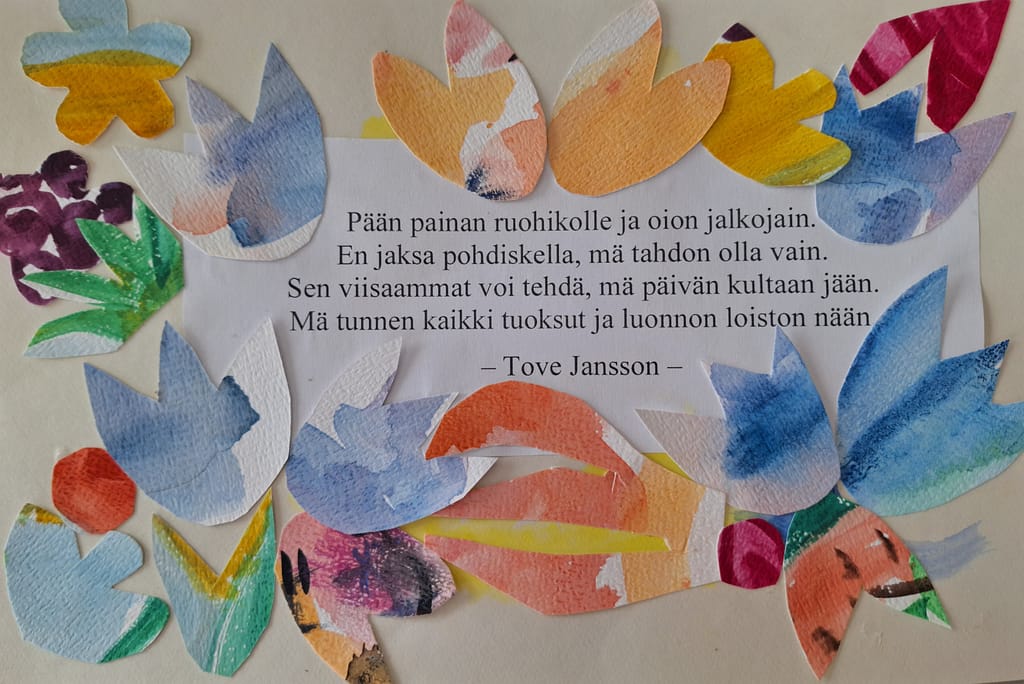 Pään painan ruohikolle ja oion jalkojain.
En jaksa pohdiskella, mä tahdon olla vain.
Sen viisaammat voi tehdä, mä päivän kultaan jään.
Mä tunnen kaikki tuoksut ja luonnon loiston nään
– Tove Jansson –